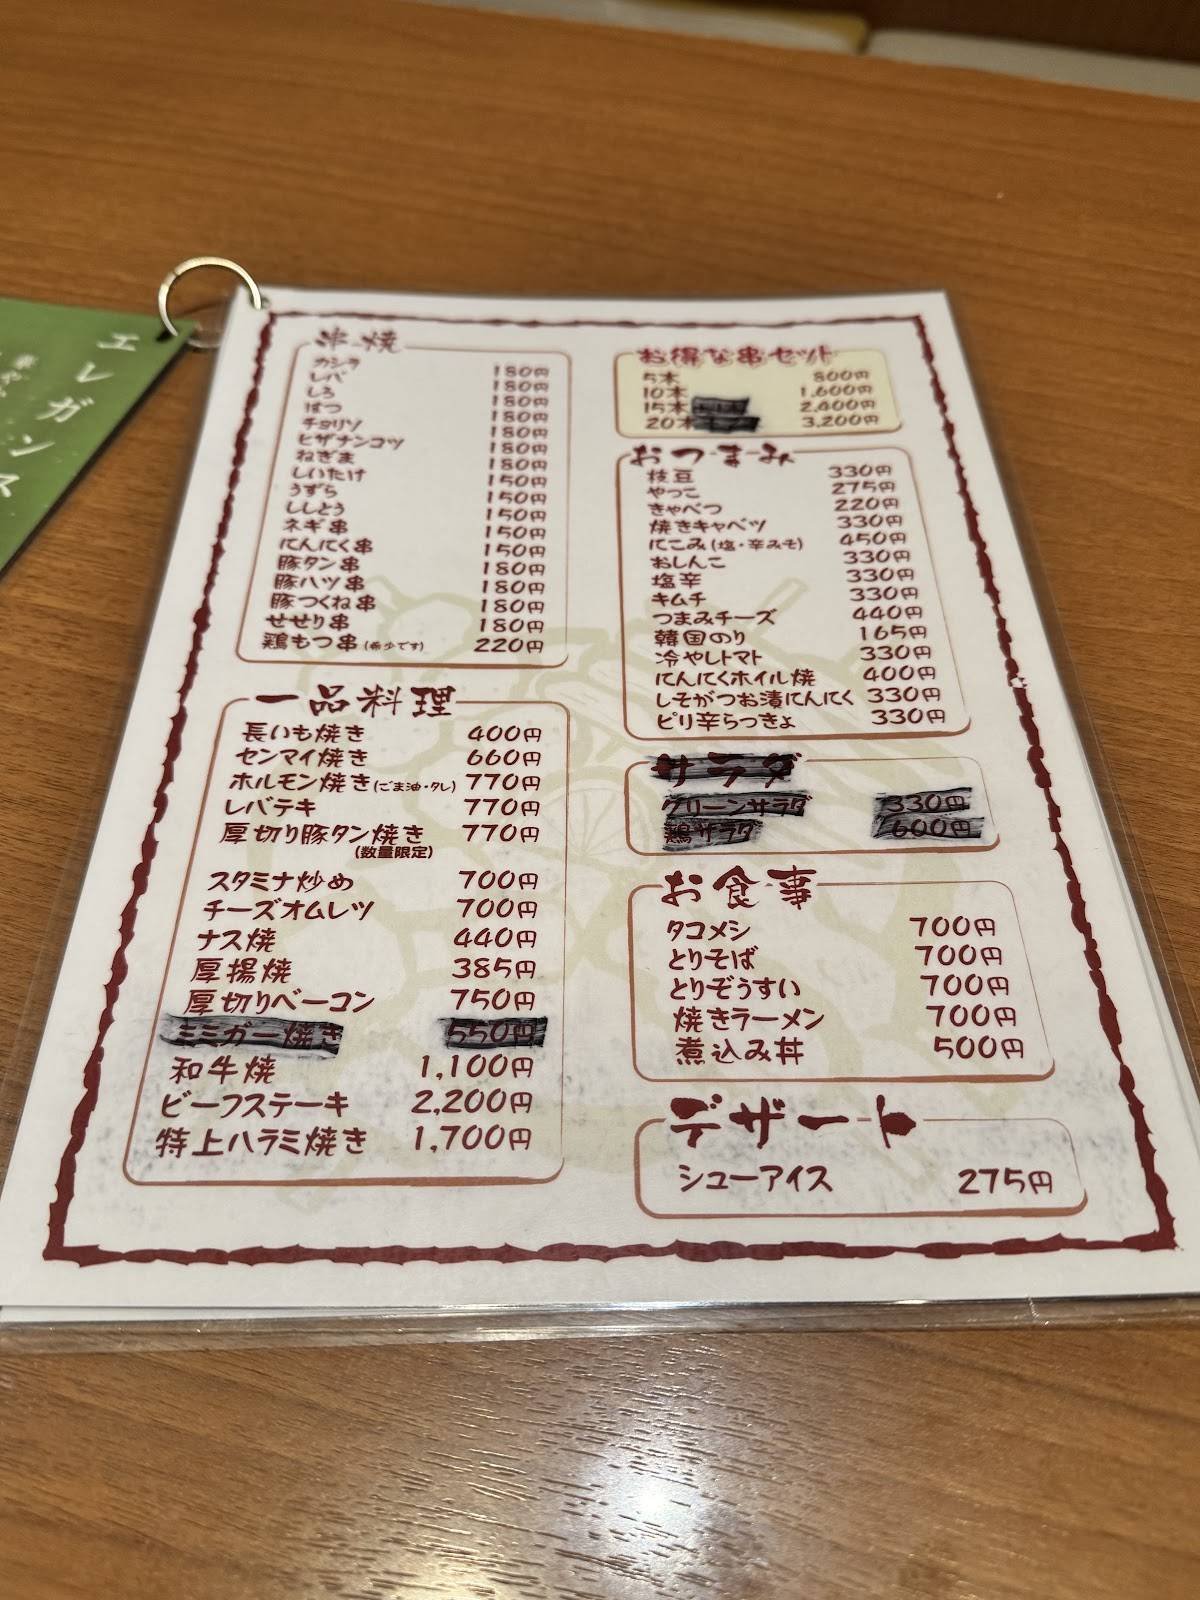 エレガンス
串焼
カシラ 180円
レバ 180円
しろ 180円
はつ 180円
チョリソ 180円
ヒザナンコツ 180円
ねぎま 180円
しいたけ 150円
うずら 150円
ししとう 150円
ネギ串 150円
にんにく串 150円
豚タン串 180円
豚ハツ串 180円
豚つくね串 180円
せせり串 180円
鶏もつ串(希少です) 220円
一品料理
長いも焼き 400円
センマイ焼き 660円
ホルモン焼き(ごま油・タレ) 770円
レバテキ 770円
厚切り豚タン焼き 770円
(数量限定)
スタミナ炒め 700円
チーズオムレツ 700円
ナス焼 440円
厚揚焼 385円
厚切りベーコン 750円
ミミガー焼き 550円
和牛焼 1,100円
ビーフステーキ 2,200円
特上ハラミ焼き 1,700円
お得な串セット
5本 800円
10本 1,600円
15本 2,400円
20本 3,200円
おつまみ
枝豆 330円
やっこ 275円
きゃべつ 220円
焼きキャベツ 330円
にこみ(塩・辛みそ) 450円
おしんこ 330円
塩辛 330円
キムチ 330円
つまみチーズ 440円
韓国のり 165円
冷やしトマト 330円
にんにくホイル焼 400円
しそがつお漬にんにく 330円
ピリ辛らっきょ 330円
サラダ
グリーンサラダ 330円
鶏サラダ 600円
お食事
タコメシ 700円
とりそば 700円
とりぞうすい 700円
焼きラーメン 700円
煮込み丼 500円
デザート
シューアイス 275円